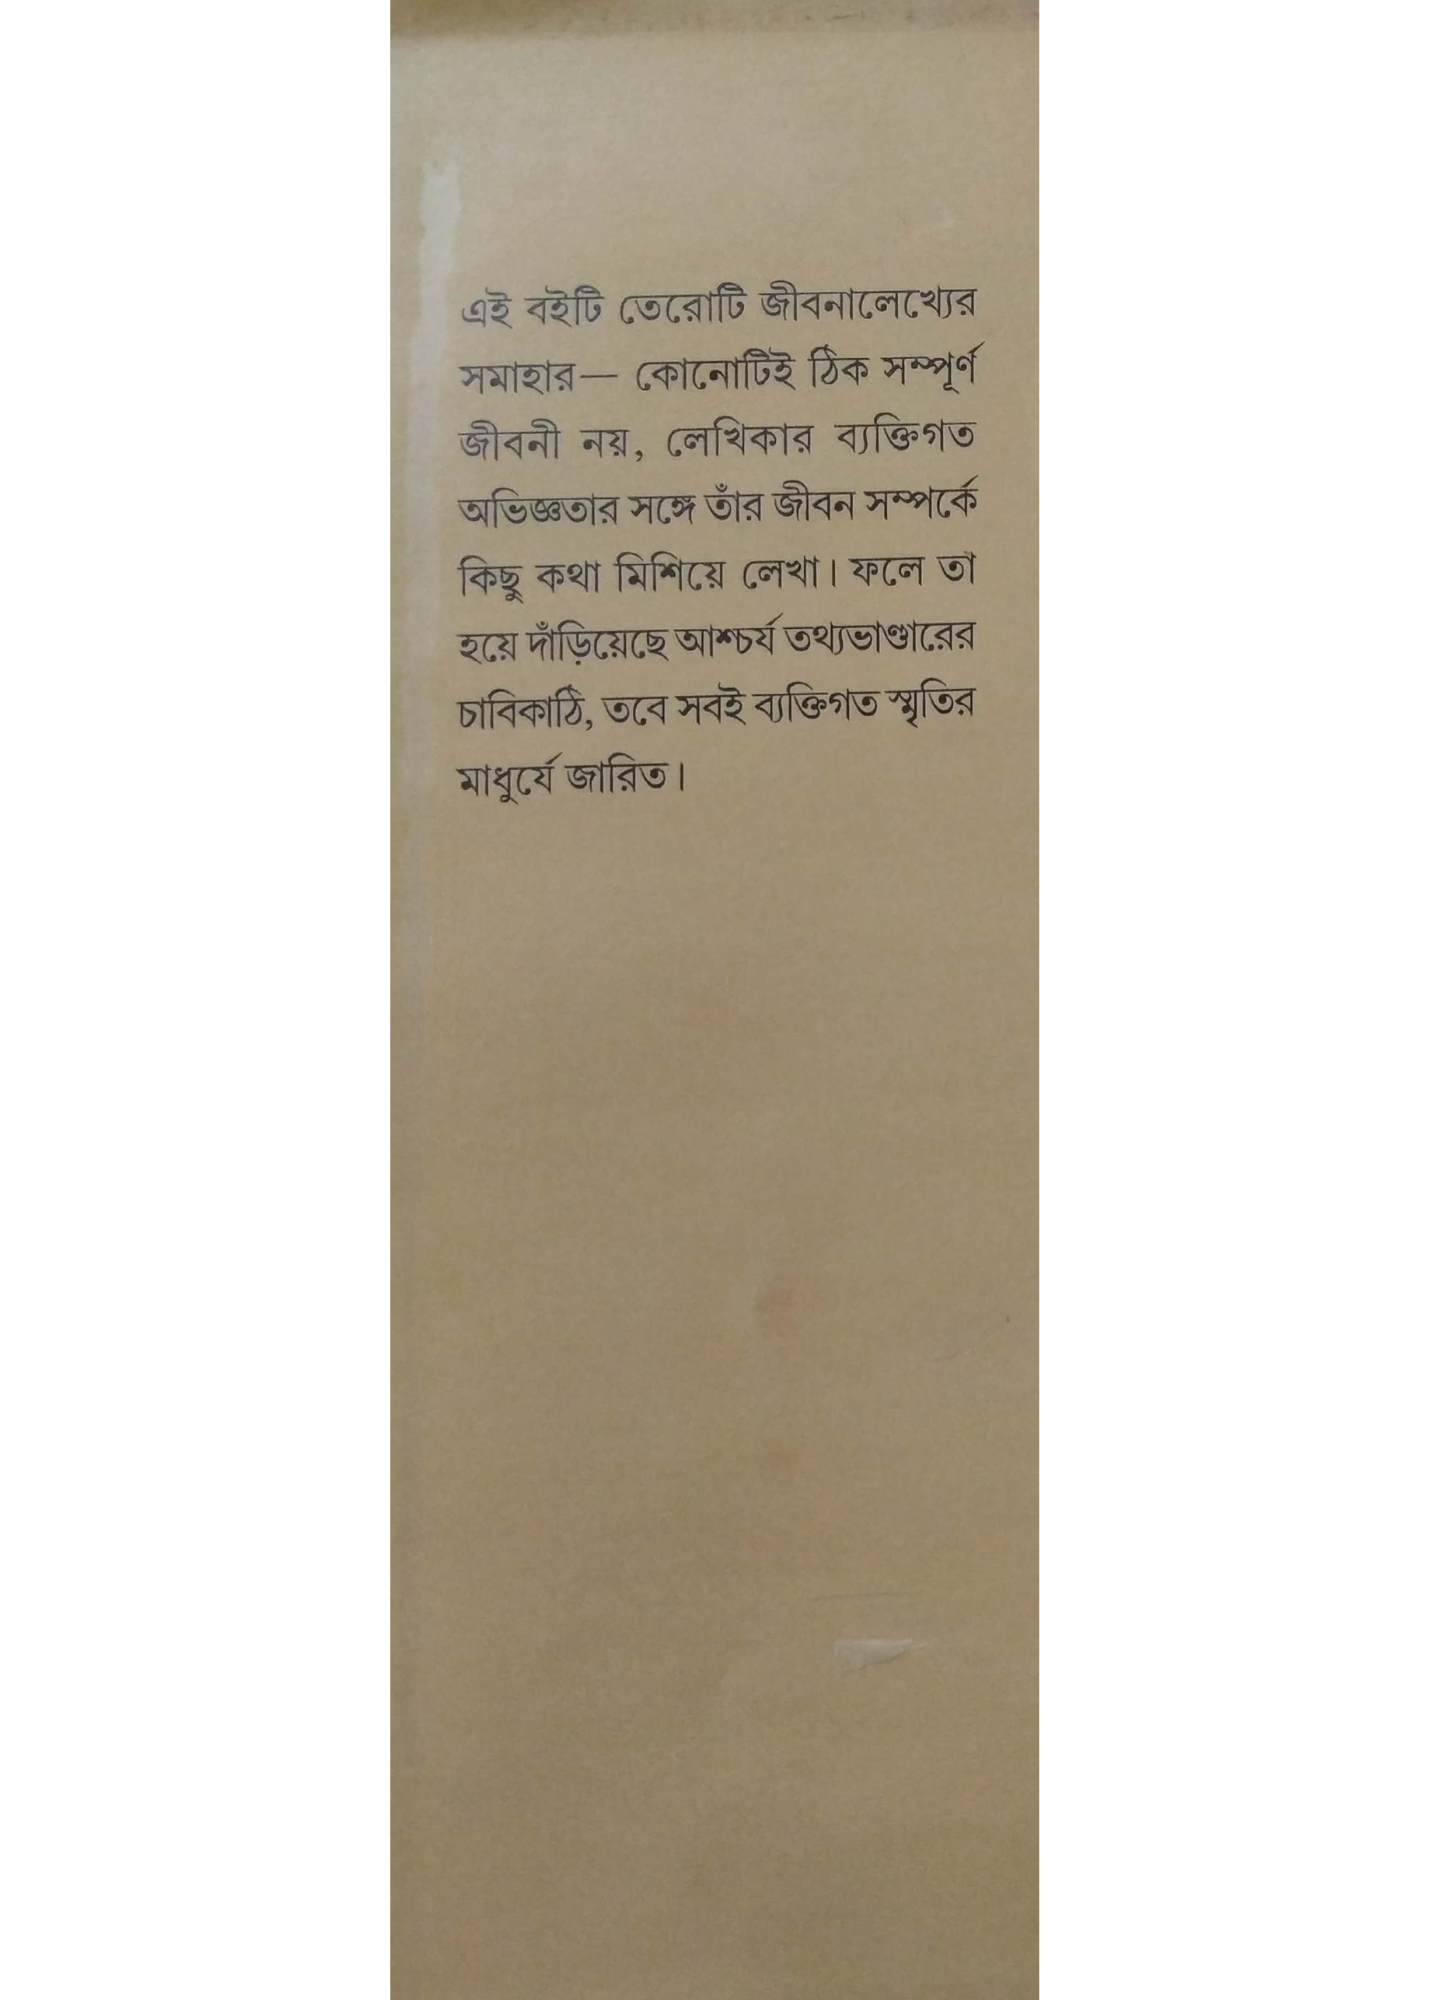 এই বইটি তেরোটি জীবনালেখ্যের
সমাহার— কোনোটিই ঠিক সম্পূর্ণ
জীবনী নয়, লেখিকার ব্যক্তিগত
অভিজ্ঞতার সঙ্গে তাঁর জীবন সম্পর্কে
কিছু কথা মিশিয়ে লেখা। ফলে তা
হয়ে দাঁড়িয়েছে আশ্চর্য তথ্যভাণ্ডারের
চাবিকাঠি, তবে সবই ব্যক্তিগত স্মৃতির
মাধুর্যে জারিত।